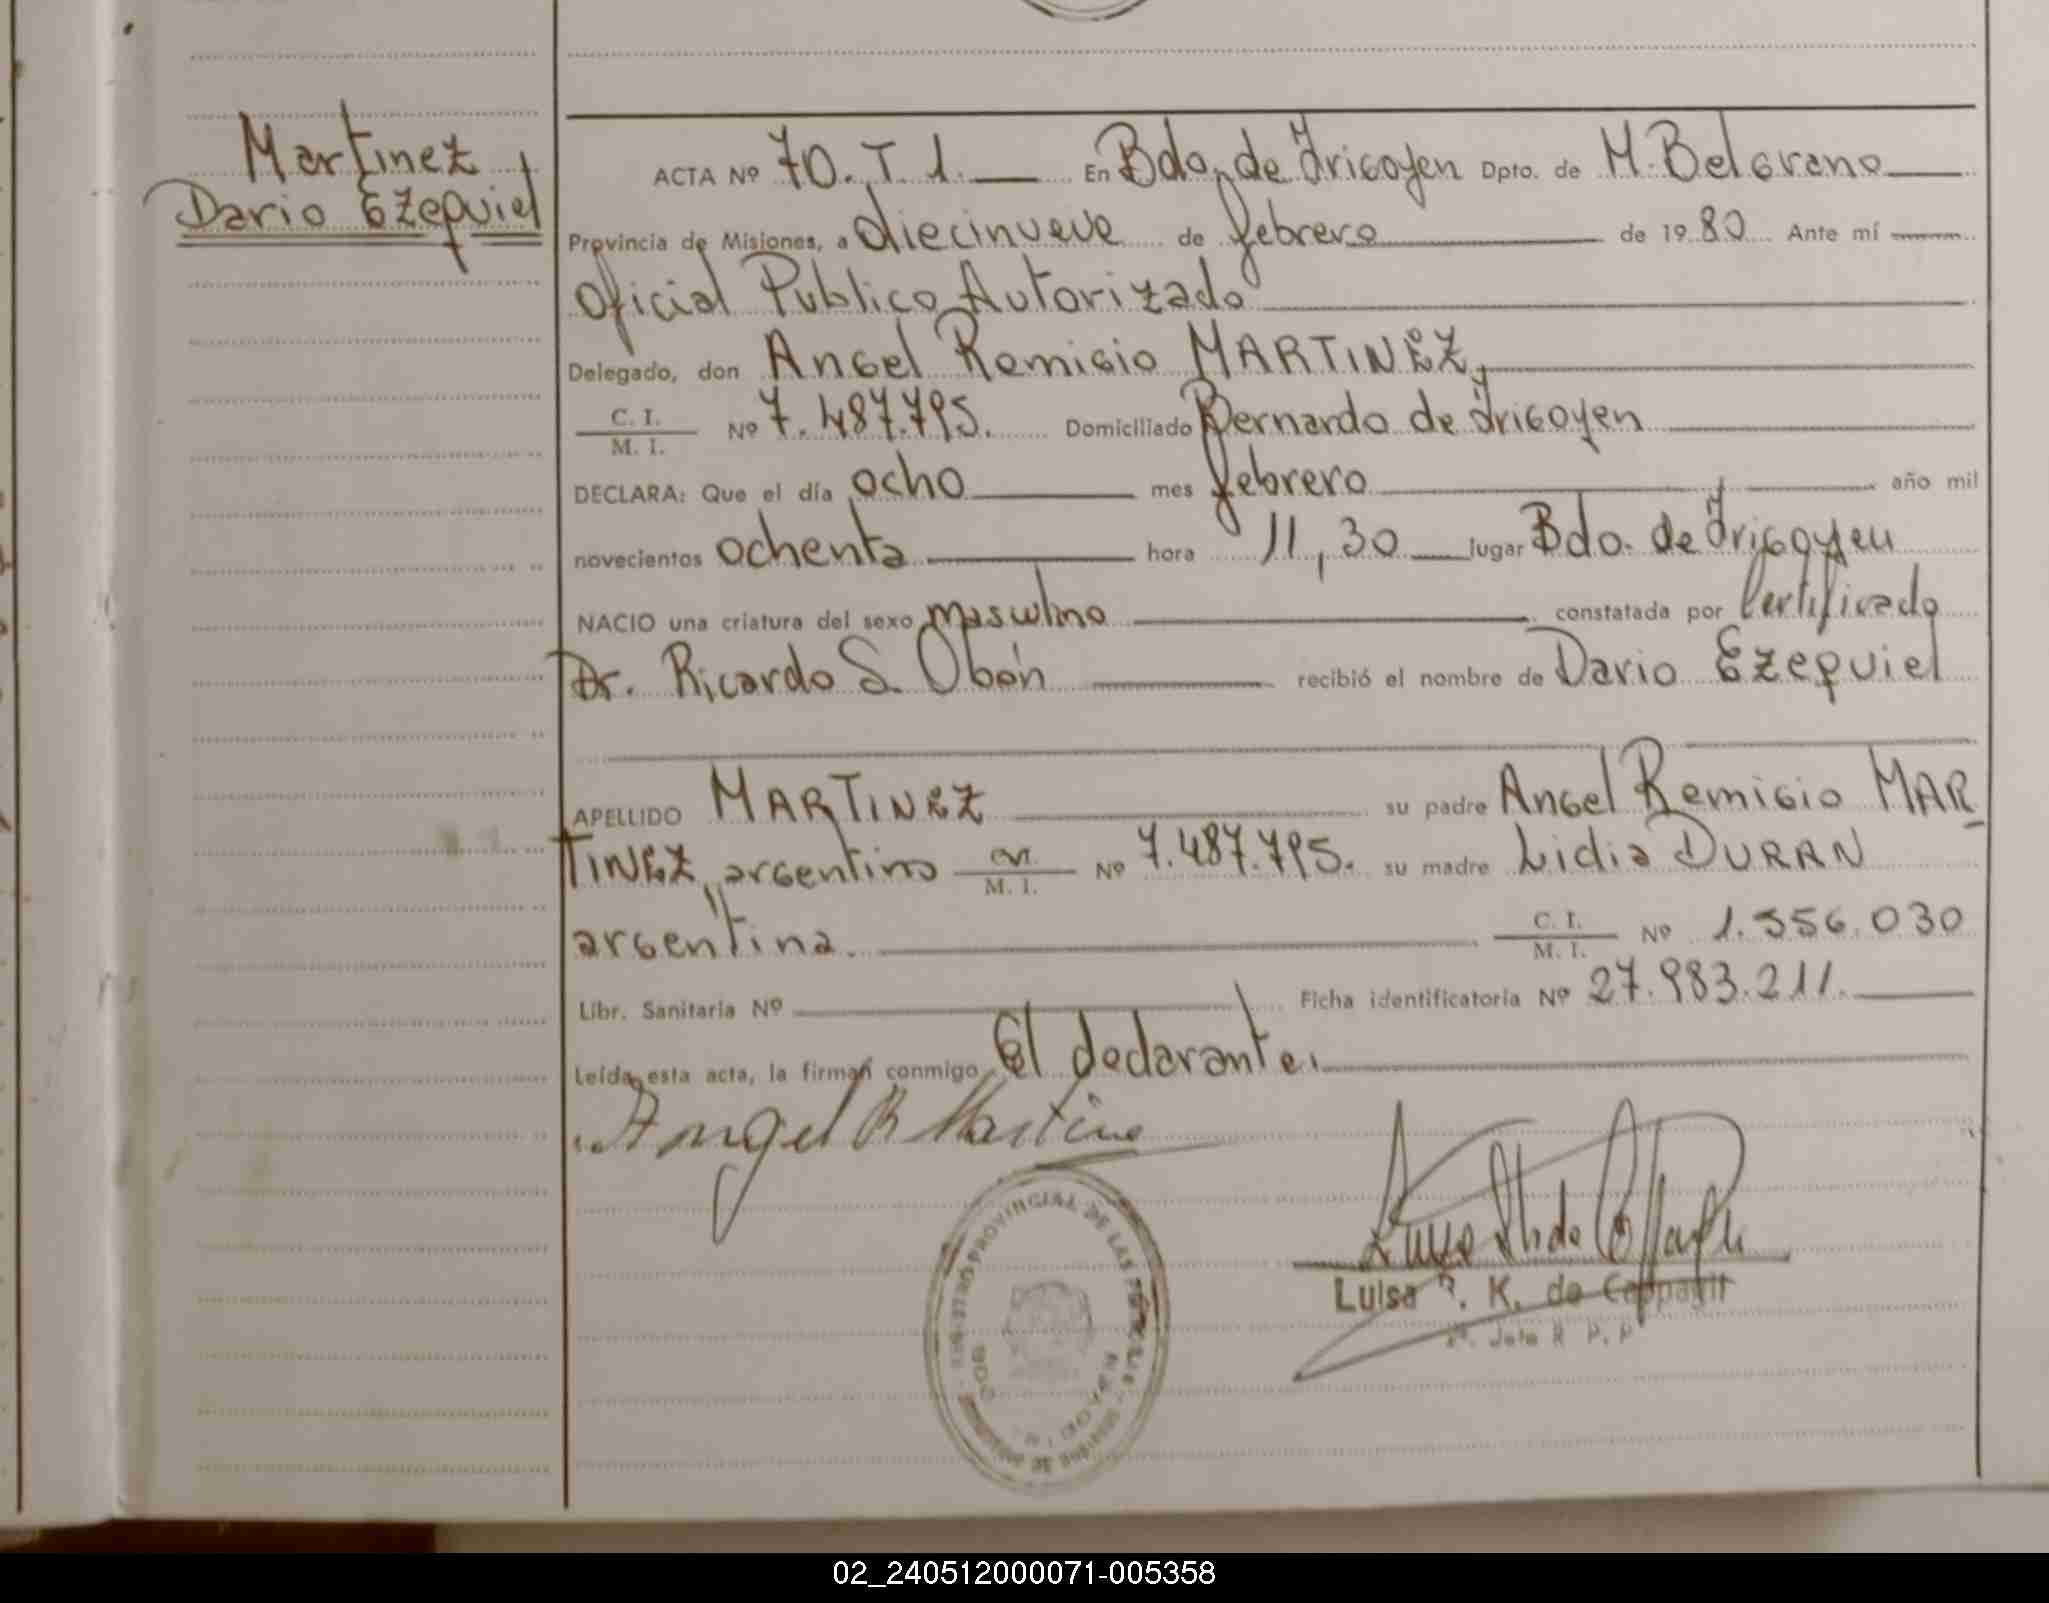 Martinez
Dario Ezequiel
ACTA Nº 70. T 1. En Bdo. de Irigoyen Dpto. de M. Belgrano
Provincia de Misiones, a diecinueve de febrero de 1980 Ante mí
Oficial Publico Autorizado
Delegado, don Angel Remigio MARTINEZ,
C. I.
M. I. Nº 7.487.795. Domiciliado Bernardo de Irigoyen
DECLARA: Que el día ocho mes febrero año mil
novecientos ochenta hora 11,30 lugar Bdo. de Irigoyen
NACIO una criatura del sexo masculino constatada por Certificado
Dr. Ricardo S. Obón recibió el nombre de Dario Ezequiel
APELLIDO MARTINEZ su padre Angel Remigio MAR-
TINEZ, argentino M. I. Nº 7.487.795. su madre Lidia DURAN
argentina. C. I.
M. I. Nº 1.556.030
Libr. Sanitaria Nº Ficha identificatoria Nº 27.983.211.
Leída esta acta, la firman conmigo El declarante.
Angel R Martine
REGISTRO PROVINCIAL DE LAS PERSONAS
Luisa K. de
02_240512000071-005358